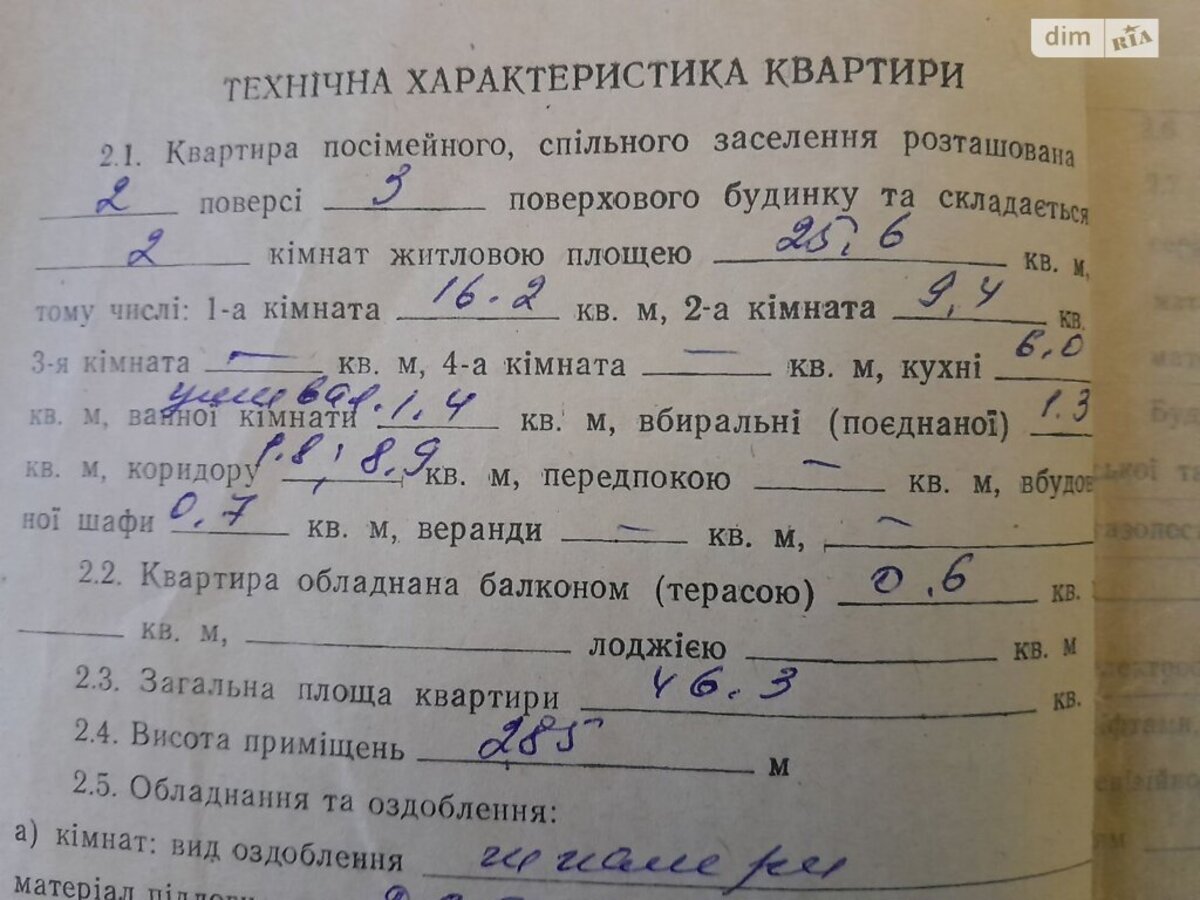 dim RIA
ТЕХНІЧНА ХАРАКТЕРИСТИКА КВАРТИРИ
2.1. Квартира посімейного, спільного заселення розташована
2 поверсі 3 поверхового будинку та складається
2 кімнат житловою площею 25,6 кв. м,
тому числі: 1-а кімната 16.2 кв. м, 2-а кімната 9,4 кв.
3-я кімната — кв. м, 4-а кімната — кв. м, кухні 6.0
кв. м, ванної кімнати умывал. 1.4 кв. м, вбиральні (поєднаної) 1.3
кв. м, коридору 1.8, 8.9 кв. м, передпокою — кв. м, вбудов
ної шафи 0.7 кв. м, веранди — кв. м, —
2.2. Квартира обладнана балконом (терасою) 0.6 кв.
кв. м, лоджією кв. м
2.3. Загальна площа квартири 46.3 кв.
2.4. Висота приміщень 285 м
2.5. Обладнання та оздоблення:
а) кімнат: вид оздоблення шпалери
матеріал підлоги